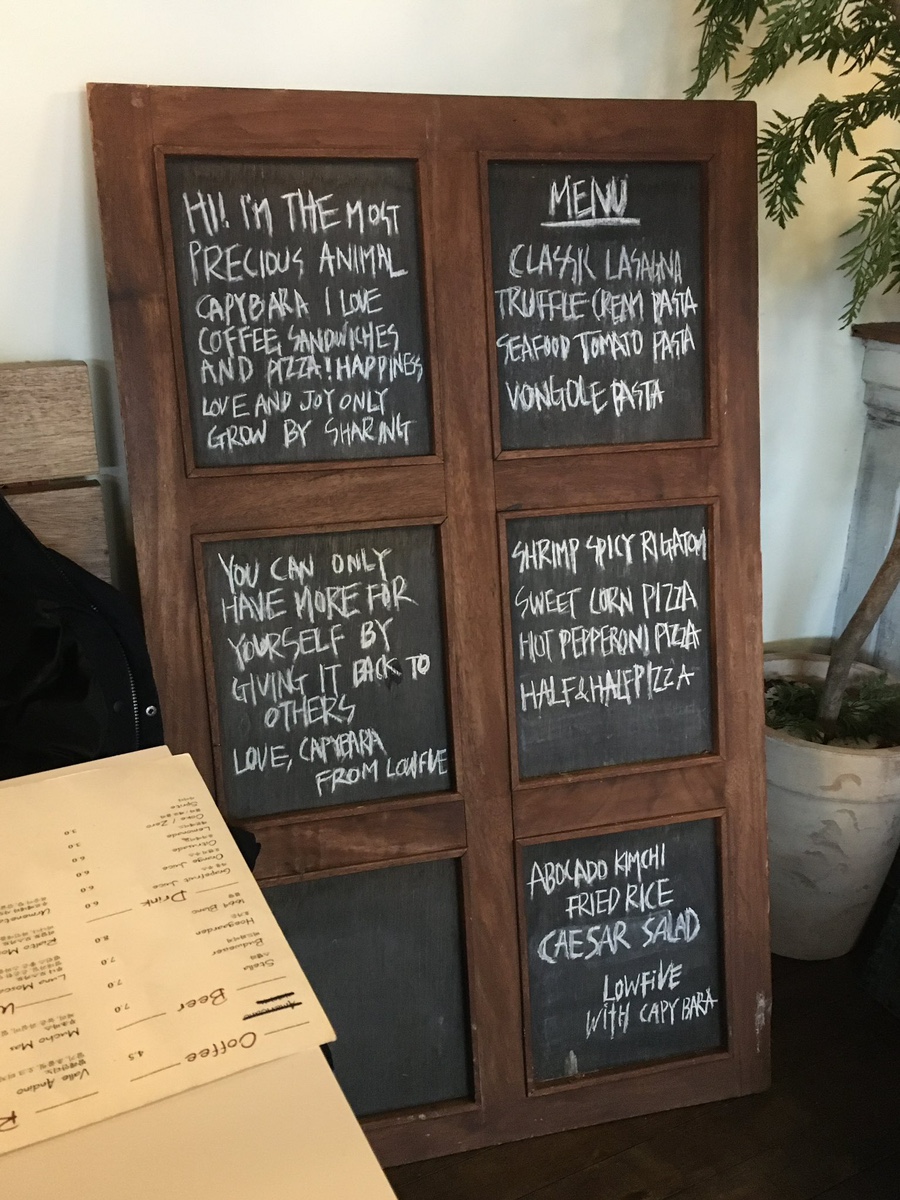 HI! I'M THE MOST
PRECIOUS ANIMAL
CAPYBARA I LOVE
COFFEE, SANDWICHES
AND PIZZA! HAPPINESS
LOVE AND JOY ONLY
GROW BY SHARING
YOU CAN ONLY
HAVE MORE FOR
YOURSELF BY
GIVING IT BACK TO
OTHERS
LOVE, CAPYBARA
FROM LOWFIVE
MENU
CLASSIC LASAGNA
TRUFFLE CREAM PASTA
SEAFOOD TOMATO PASTA
VONGOLE PASTA
SHRIMP SPICY RIGATONI
SWEET CORN PIZZA
HOT PEPPERONI PIZZA
HALF & HALF PIZZA
ABOCADO KIMCHI
FRIED RICE
CAESAR SALAD
LOWFIVE
WITH CAPYBARA
Coffee
4.5
Beer
Stella
Budweiser
Hoegaarden
1664 Blanc
7.0
7.0
7.0
8.0
Drink
Grapefruit Juice
Orange Juice
Lemonade
Coke / Zero
Sprite
6.0
6.0
6.0
3.0
3.0
Valle Andino
Mucho Mas